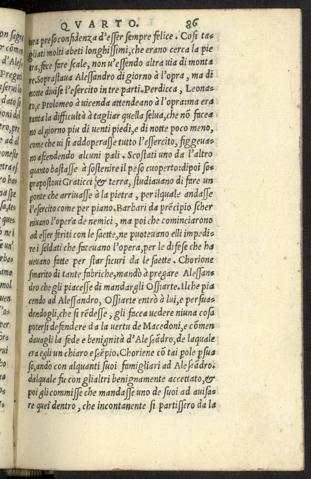 QVARTO. 86
ueva preso confidenza d'esser sempre felice. Cosi ta=
gliati molti abeti longhissimi, che erano cerca la pie
tra, fece fare scale, non u'essendo altra uia di monta
re. Soprastaua Alessandro di giorno à l'opra, ma di
notte diuise l'esercito in tre parti. Perdicca, Leona=
to, e Ptolomeo à uicenda attendeano à l'opra: ma era
tanta la difficultà à tagliar quella selua, che nõ facea
no al giorno piu di uenti piedi, e di notte poco meno,
come che ui si addoperasse tutto l'essercito, figgeua=
no ascendendo alcuni pali. Scostati uno da l'altro
quanto bastasse à sostenire il peso cuoperto: dipoi so=
propostoui Graticci & terra, studiauano di fare un
ponte che arriuasse à la pietra, per ilquale andasse
l'esercito come per piano. Barbari da prĩcipio scher
niuano l'opera de nemici, ma poi che cominciarono
ad esser feriti con le saette, ne puoteuano elli impedi=
re i soldati che faceuano l'opera, per le difese che ha
ueuano fatte per star sicuri da le saette. Choriene
smarito di tante fabriche, mandò à pregare Alessan=
dro che gli piacesse di mandargli Ossiarte. Ilche pia
cendo ad Alessandro, Ossiarte entrò à lui, e persua=
dendogli, che si rẽdesse, gli facea uedere niuna cosa
potersi defendere da la uertu de Macedoni, e cõmen
dauagli la fede e benignità d'Alesãdro, de laquale
era egli un chiaro esẽpio. Choriene cõ tai pole psua
so, andò con alquanti suoi famigliari ad Alesãdro.
dalquale fu con gli altri benignamente accettato, &
poi gli commisse che mandasse uno de suoi ad auisa=
re quei dentro, che incontanente si partissero da la